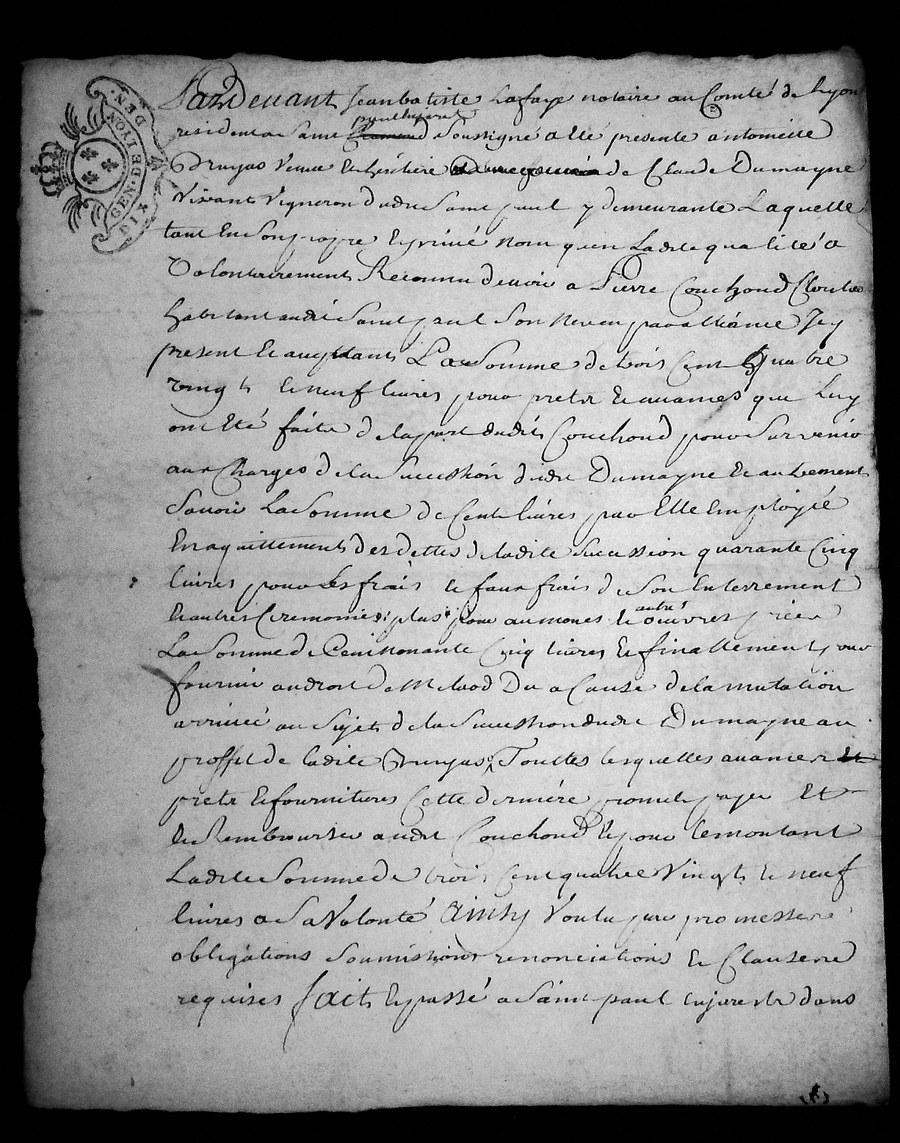 GEN. DE LYON
DIX DEN.
Pardevant Jean batiste Lafay notaire au Comté de Lyon
paul en jarest
resident a Saint Chamond Soussigné a été presente antoinette
Bruyas Veuve et héritiere de Claude Dumayne
Vivant Vigneron dudit Saint paul y demeurante Laquelle
tant En Son propre et privé Nom qu'en Ladite qualité a
Volontairement Reconnu devoir a Pierre Couchoud Cloutier
habitant audit Saint paul Son Neveu par alliance Icy
present et acceptant La Somme de trois Cent quatre
vingt et neuf livres pour prets et avances que Luy
ont Eté faits de la part dudit Couchoud pour Survenir
aux Charges de la Succession dudit Dumayne et autrement
Savoir La Somme de Cent livres par Elle Employée
En aquittement des dettes de ladite Succession quarante Cinq
livres pour les frais et faux frais de Son Enterrement
autres
et autres Ceremonies plus pour aumones et oeuvres pies
La Somme de Cent Nonante Cinq livres et finallement pour
fournir au droit de Milaod Du a Cause de la mutation
arrivée au Sujet de la Succession dudit Dumayne au
proffit de ladite Bruyas Touttes lesquelles avances
prets et fournitures Cette derniére promet payer Et
Rembourser audit Couchoud et pour le montant
Ladite Somme de trois Cent quatre Vingt et neuf
livres a Sa Volonté Ainsy Voulu par promesse
obligations Soumissions renonciations et Clauses
requises fait et passé a Saint paul en jarest dans